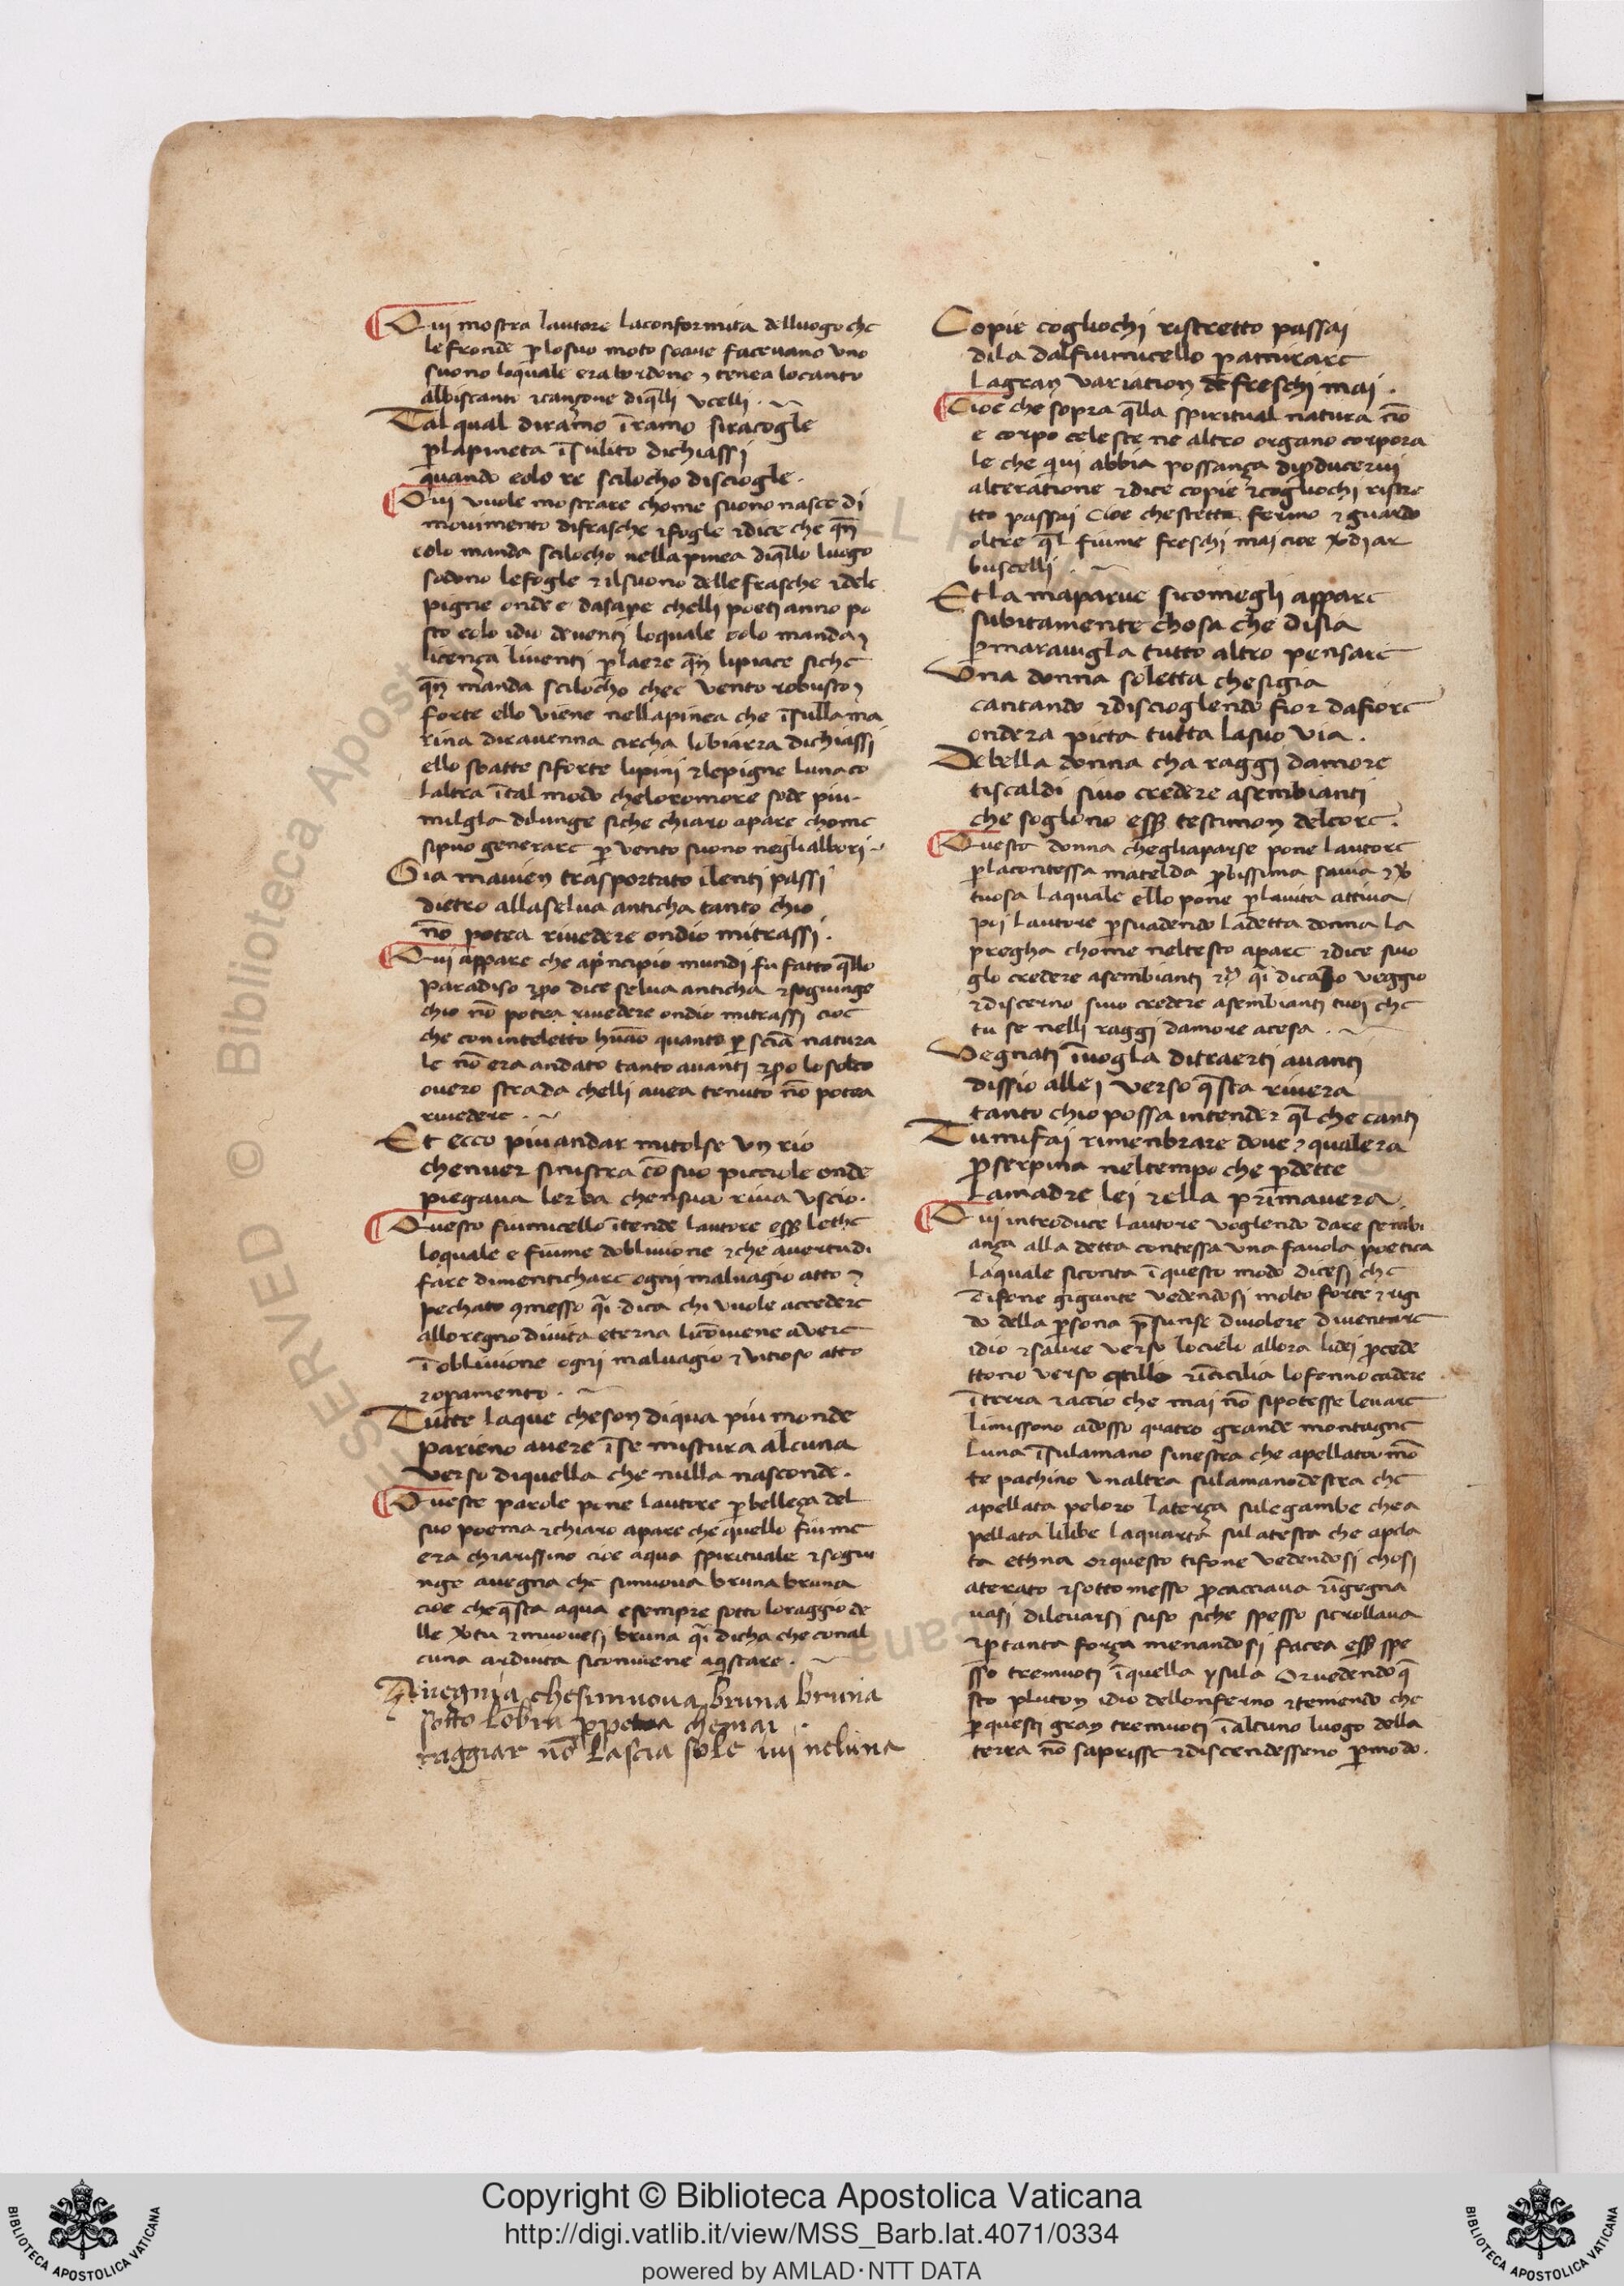 Qui mostra lautore laconformita delluogo che
le fronde p̱ losuo moto soave facevano uno
suono loquale era bordone ⁊ tenea locanto
albiscanti ⁊ canzone diq̄lli ucelli.
Tal qual diramo ī ramo siracogle
p̱ lapineta ī sulito dichiassi
quando eolo re scilocho disciogle.
Qui vuole mostrare chome suono nasce di
movimento difrasche ⁊ fogle ⁊ dice che qn̄
eolo manda scilocho nella pinea diq̄llo luogo
sodono lefogle ⁊ ilsuono delle frasche ⁊ dele
pigne onde e dasape chelli poeti anno po
sto eolo idio deventi loquale eolo manda ⁊
licença liventi p̱ laere qn̄ lipiace siche
qn̄ manda scilocho chee vento robusto ⁊
forte ello viene nellapinea che ī sulla ma
rina diravenna circha lobiarra dichiassi
ello sbatte siforte lipini ⁊ lepigne luna co
laltra ī tal modo cheloromore sode piu
milgla dilunge siche chiaro apare chome
sipuo generare p̱ vento suono neglialbori
Gia mavien trasportato ilenti passi
dietro allaselva anticha tanto chio
nō potea rivedere ondio mitrassi.
Qui appare che apͥncipio mundi fu fatto q̄llo
paradiso ⁊ po dice selva anticha ⁊ sogiunge
chio nō potea rivedere ondio mitrassi cioe
che con inteletto huāo quanto p̱ sciā natura
le nō era andato tanto avanti ⁊ po lo solco
overo strada chelli avea tenuto nō potea
rivedere.
Et ecco piu andar mitolse un rio
chenver sinistra cō suo picciole onde
piegava lerba chensua riva uscio.
Questo fiumicello ītende lautore eēr lethe
loquale e fiume doblivione ⁊ che avertu di
fare dimenticharc ogni malvagio atto ⁊
pechato ꝯmesso q̄i dica chi vuole accedere
alloregno divita eterna licōviene avere
ī oblivione ogni malvagio ⁊ vicioso atto
⁊ op̱amento.
Tutte laque cheson diqua piu monde
parieno avere ī se mistura alcuna
verso diquella che nulla nasconde.
Queste parole pone lautore p̱ belleça del
suo poema ⁊ chiaro apare che quello fiume
era chiarissimo cioe aqua spirituale ⁊ sogiu
nge avegna che simuova bruna bruna
cioe che q̄sta aqua e sempre sotto loraggio de
lle v̄tu ⁊ muovesi bruna q̄i dicha che con al
cuna arduita siconviene aq̇stare.
Avegnia chesimuova bruna bruna
sotto lobra p̱petua chemai
raggiar nō lascia sole ivi neluna
Copie cogliochi ristretto passai
dila dalfiumicello p̱amirare
lagran variation defreschi mai.
Cioe che sopra q̄lla spiritual natura nō
e corpo celeste ne altro organo corpora
le che quivi abbia possança dip̱ducervi
alteratione ⁊ dice copie ⁊ cogliochi ristre
tto passai cioe chestette fermo ⁊ guardo
oltre q̄l fiume freschi mai cioe v̄di ar
buscelli
Et la maparve sicomegli appare
subitamente chosa che disia
p̱ maravigla tutto altro pensare
Una donna soletta chesigia
cantando ⁊ discioglendo fior dafiore
ondera picta tutta lasuo via.
De bella donna cha raggi damore
tiscaldi sivo credere asembianti
che soglono eēr testimon delcore.
Questa donna chegliaparse pone lautore
p̱ lacontessa matelda p̱bissima savia ⁊ v̄
tuosa laquale ello pone p̱ lavita attiva
poi lautore p̱suadendo ladetta donna la
pregha chome neltesto apare ⁊ dice suo
glo credere asembianti ⁊c̄ q̄i dica io veggio
⁊ discerno sivo credere asembianti tuoi che
tu se nelli raggi damore acesa.
Vegnati īvogla ditraerti avanti
dissio allei verso q̄sta rivera
tanto chio possa intender q̄l che canti
Tu mifai rimenbrare dove ⁊ qualera
p̱serpina neltempo che p̱dette
lamadre lei ⁊ ella prīmavera.
Qui introduce lautore voglendo dare sembi
ança alla detta contessa una favola poetica
laquale siconta ī questo modo dicesi che
Tifone gigante vedendosi molto forte ⁊ rigi
do della p̱sona p̄sunse divolere diventare
idio ⁊ salire verso locielo allora lidei p̱cede
ttono verso q̄lli ⁊ ī cicilia lofenno cadere
ī terra ⁊ accio che mai nō sipotesse levare
limissono adosso quatro grande montagne
luna ī sulamano sinestra che apellata mō
te pachino unaltra sulamanodestra che
apellata peloro laterça sulegambe chea
pellata lilibe laquarta sulatesta che apela
ta ethna or questo tifone vedendosi chosi
aterato ⁊ sotto messo p̱cacciava ⁊ īgegna
vasi dilevarsi suso siche spesso sicrollava
⁊ p̱ tanta força menandosi facea eēr spe
sso tremuoti ī quella ysula Or vedendo q̄
sto pluton idio dellonferno ⁊ temendo che
p̱ questi gran tremuoti ī alcuno luogo della
terra nō saprisse ⁊ discendesseno p̱ modo.
RVED © Biblioteca Apost
Copyright © Biblioteca Apostolica Vaticana
http://digi.vatlib.it/view/MSS_Barb.lat.4071/0334
powered by AMLAD·NTT DATA
BIBLIOTECA APOSTOLICA VATICANA
BIBLIOTECA APOSTOLICA VATICANA